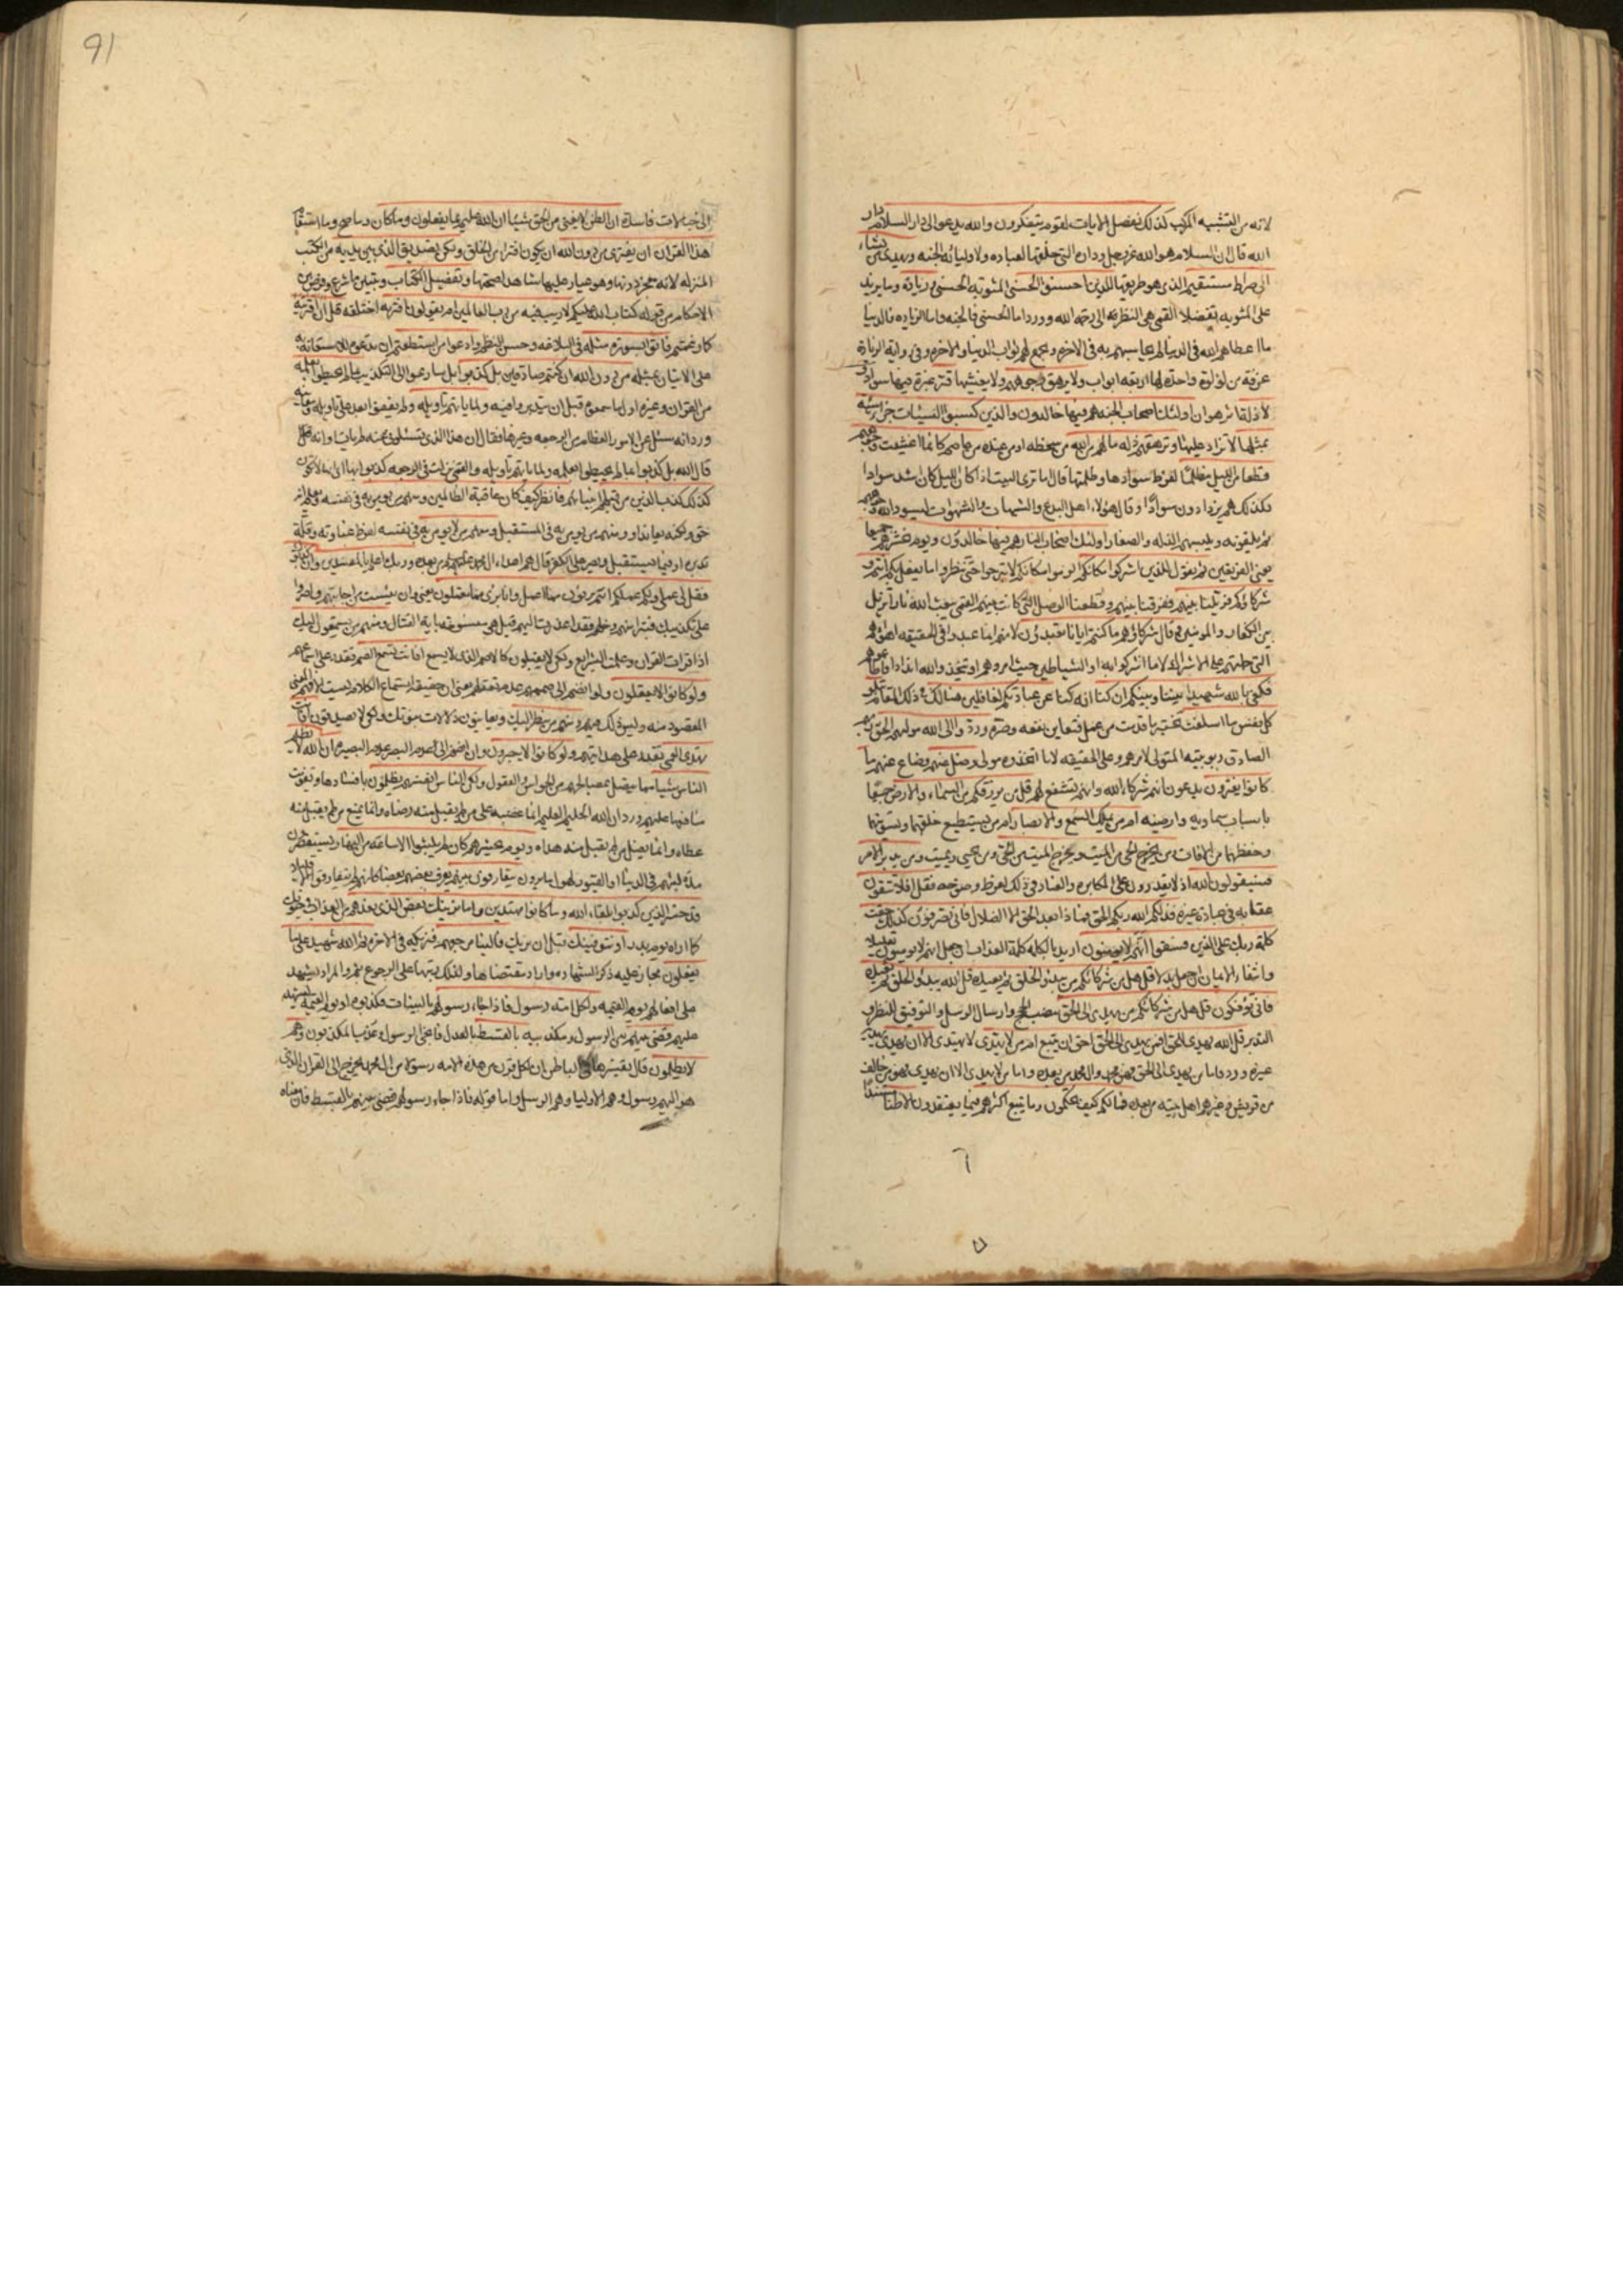 لانه من التشبيه المركب كذلك نفصل الايات لقوم يتفكرون والله يدعوا الى دار السلام دار
الله قال ان السلام هو الله عز وجل وداره التي خلقها لعباده ولاوليائه الجنه ويهدي من يشاء
الى صراط مستقيم الذي هو طريقها للذين احسنوا الحسنى المثوبة الحسنى وزيادة وما يزيد
على المثوبه تفضلا القمي هي النظر الى رحمة الله وورد اما الحسنى فالجنه واما الزياده فالدنيا
ما اعطاهم الله في الدنيا لم يحاسبهم به في الاخرة ويجمع لهم ثواب الدنيا والاخرة وفي رواية الزيادة
غرفة من لؤلؤة واحدة لها اربعة ابواب ولا يرهق وجوههم ولا يغشيها قتر غبرة فيها سواد و
لا ذلة اثر هوان اولئك اصحاب الجنة هم فيها خالدون والذين كسبوا السيئات جزاء سيئة
بمثلها لا تزاد عليها وترهقهم ذلة ما لهم من الله من سخطه او من عنده من عاصم كانما اغشيت وجوههم
قطعا من الليل مظلما لفرط سوادها وظلمتها قال اما ترى البيت اذا كان الليل كان اشد سوادا
فكذلك هم يزدادون سوادا وقال هؤلاء اهل البدع والشبهات والشهوات يسود الله وجوههم
ثم يلقونه ويلبسهم الذلة والصغار اولئك اصحاب النار هم فيها خالدون ويوم نحشرهم جميعا
يعني الفريقين ثم نقول للذين اشركوا مكانكم الزموا مكانكم لا تبرحوا حتى تنظروا ما يفعل بكم انتم و
شركاؤكم فزيلنا بينهم ففرقنا بينهم وقطعنا الوصل التي كانت بينهم القمي يبعث الله نارا تزيل
بين الكفار والمومنين وقال شركاؤهم ما كنتم ايانا تعبدون لانهم انما عبدوا في الحقيقه اهوائهم
التي حملتهم على الاشراك لا ما اشركوا به او الشياطين حيث امروهم ان يتخذوا لله اندادا
فكفى بالله شهيدا بيننا وبينكم ان كنا انه كنا عن عبادتكم لغافلين هنالك في ذلك المقام تبلو
كل نفس ما اسلفت تختبر ما قدمت من عمل فتعاين نفعه وضره وردوا الى الله موليهم الحق
الصادق ربوبيته المتولي لامرهم على الحقيقه لا ما اتخذوه مولى وضل عنهم وضاع عنهم ما
كانوا يفترون يدعون انهم شركاء الله وانهم تشفع لهم قل من يرزقكم من السماء والارض جميعا
باسباب سماوية وارضيه امن يملك السمع والابصار ام من يستطيع خلقهما وتسويتهما
وحفظهما من الافات من يخرج الحي من الميت ويخرج الميت من الحي ومن يحيي ويميت ومن يدبر الامر
فسيقولون الله اذ لا يقدرون على المكابره والعناد في ذلك لفرط وضوحه فقل افلا تتقون
عقابه في عبادة غيره فذلكم الله ربكم الحق فماذا بعد الحق الا الضلال فانى تصرفون كذلك حقت
كلمة ربك على الذين فسقوا انهم لا يومنون اريد بالكلمه كلمة العذاب
وانتفاء الايمان قل هل من شركائكم من يبدؤ الخلق ثم يعيده قل الله يبدؤ الخلق ثم يعيده
فانى تؤفكون قل هل من شركائكم من يهدي الى الحق بنصب الحجج وارسال الرسل والتوفيق للنظر و
التدبر قل الله يهدي للحق افمن يهدي الى الحق احق ان يتبع امن لا يهدي لا يهتدي الا ان يهدى يهديه
غيره وورد فاما من يهدي الى الحق فهو محمد وال محمد من بعده واما من لا يهدي الا ان يهدى فهو من خالف
من قريش وغيرهم اهل بيته من بعده فما لكم كيف تحكمون وما يتبع اكثرهم فيما يعتقدون الا ظنا مستندا
٦
91
الى خيالات فاسدة ان الظن لا يغني من الحق شيئا ان الله عليم بما يفعلون وما كان وما صح وما استقام
هذا القران ان يفترى من دون الله ان يكون افتراء من الخلق ولكن تصديق الذي بين يديه من الكتب
المنزله لانه معجز دونها وهو عيار عليها شاهد لصحتها وتفصيل الكتاب وتبيين ما شرع وفرض من
الاحكام من قوله كتاب الله عليكم لا ريب فيه من رب العالمين ام يقولون افتريه اختلقه قل ان افتريته
كما زعمتم فاتوا بسورة مثله في البلاغه وحسن النظم وادعوا من استطعتم ان تدعوه للاستعانة به
على الاتيان بمثله من دون الله ان كنتم صادقين بل كذبوا بل سارعوا الى التكذيب بما لم يحيطوا بعلمه
من القران وغيره اول ما سمعوه قبل ان يتدبروا فيه ولما ياتهم تاويله ولم يقفوا بعد على تاويله ومعانيه
ورد انه سئل عن الامور العظام من الرجعه وغيرها فقال ان هذا الذي تسئلون عنه لم يات اوانه
قال الله بل كذبوا بما لم يحيطوا بعلمه ولما ياتهم تاويله والقمي نزلت في الرجعه كذبوا بها اي انها لا تكون
كذلك كذب الذين من قبلهم انبيائهم فانظر كيف كان عاقبة الظالمين ومنهم من يومن به في نفسه ويعلم انه
حق ولكنه يعاند او ومنهم من يومن به في المستقبل ومنهم من لا يومن به في نفسه لفرط غباوته وقلة
تدبره او فيما يستقبل ويصر على الكفر قال هم اعداء ال محمد من بعده وربك اعلم بالمفسدين وان كذبوك
فقل لي عملي ولكم عملكم انتم بريئون مما اعمل وانا برئ مما تعملون يعني وان يئست من اجابتهم واصروا
على تكذيبك فتبرا منهم وخلهم فقد اعذرت اليهم قيل هي منسوخه باية القتال ومنهم من يستمعون اليك
اذا قرات القران وعلمت الشرايع ولكن لا يقبلون كالاصم الذي لا يسمع افانت تسمع الصم تقدر على اسماعهم
ولو كانوا لا يعقلون ولو انضم الى صممهم عدم تعقلهم
المقصود منه ومنهم من ينظر اليك ويعاينون دلالات نبوتك ولكن لا يصدقون افانت
تهدي العمي تقدر على هدايتهم ولو كانوا لا يبصرون وان انضم الى عدم البصر عدم البصيرة ان الله لا يظلم
الناس شيئا مما يتصل بمصالحهم من الحواس والعقول ولكن الناس انفسهم يظلمون بافسادها وتفويت
منافعها عليهم ورد ان الله الحليم العليم انما غضبه على من لم يقبل منه رضاه وانما يمنع من لم يقبل منه
عطاه وانما يضل من لم يقبل منه هداه ويوم نحشرهم كان لم يلبثوا الا ساعة من النهار يستقصرون
مدة لبثهم في الدنيا او القبور لهول ما يرون يتعارفون بينهم يعرف بعضهم بعضا كانهم لم يتفارقوا الا قليلا
قد خسر الذين كذبوا بلقاء الله وما كانوا مهتدين واما نرينك بعض الذي نعدهم من العذاب في حيوتك
كما اراه يوم بدر او نتوفينك قبل ان نريك فالينا مرجعهم فنريكه في الاخرة ثم الله شهيد على ما
يفعلون مجاز عليه ذكر الشهاده واراد مقتضاها ولذلك رتبها على الرجوع بثم والمراد يشهد
على افعالهم يوم القيمه ولكل امة رسول فاذا جاء رسولهم بالبينات فكذبوه او يوم القيمة ليشهد
عليهم قضى بينهم بين الرسول ومكذبيه بالقسط بالعدل فانجى الرسول وعذب المكذبون وهم
لا يظلمون قال تفسيرها في الباطن ان لكل قرن من هذه الامه رسولا من ال محمد يخرج الى القرن الذي
هو اليهم رسول وهم الاولياء وهم الرسل واما قوله فاذا جاء رسولهم قضى بينهم بالقسط فان معناه